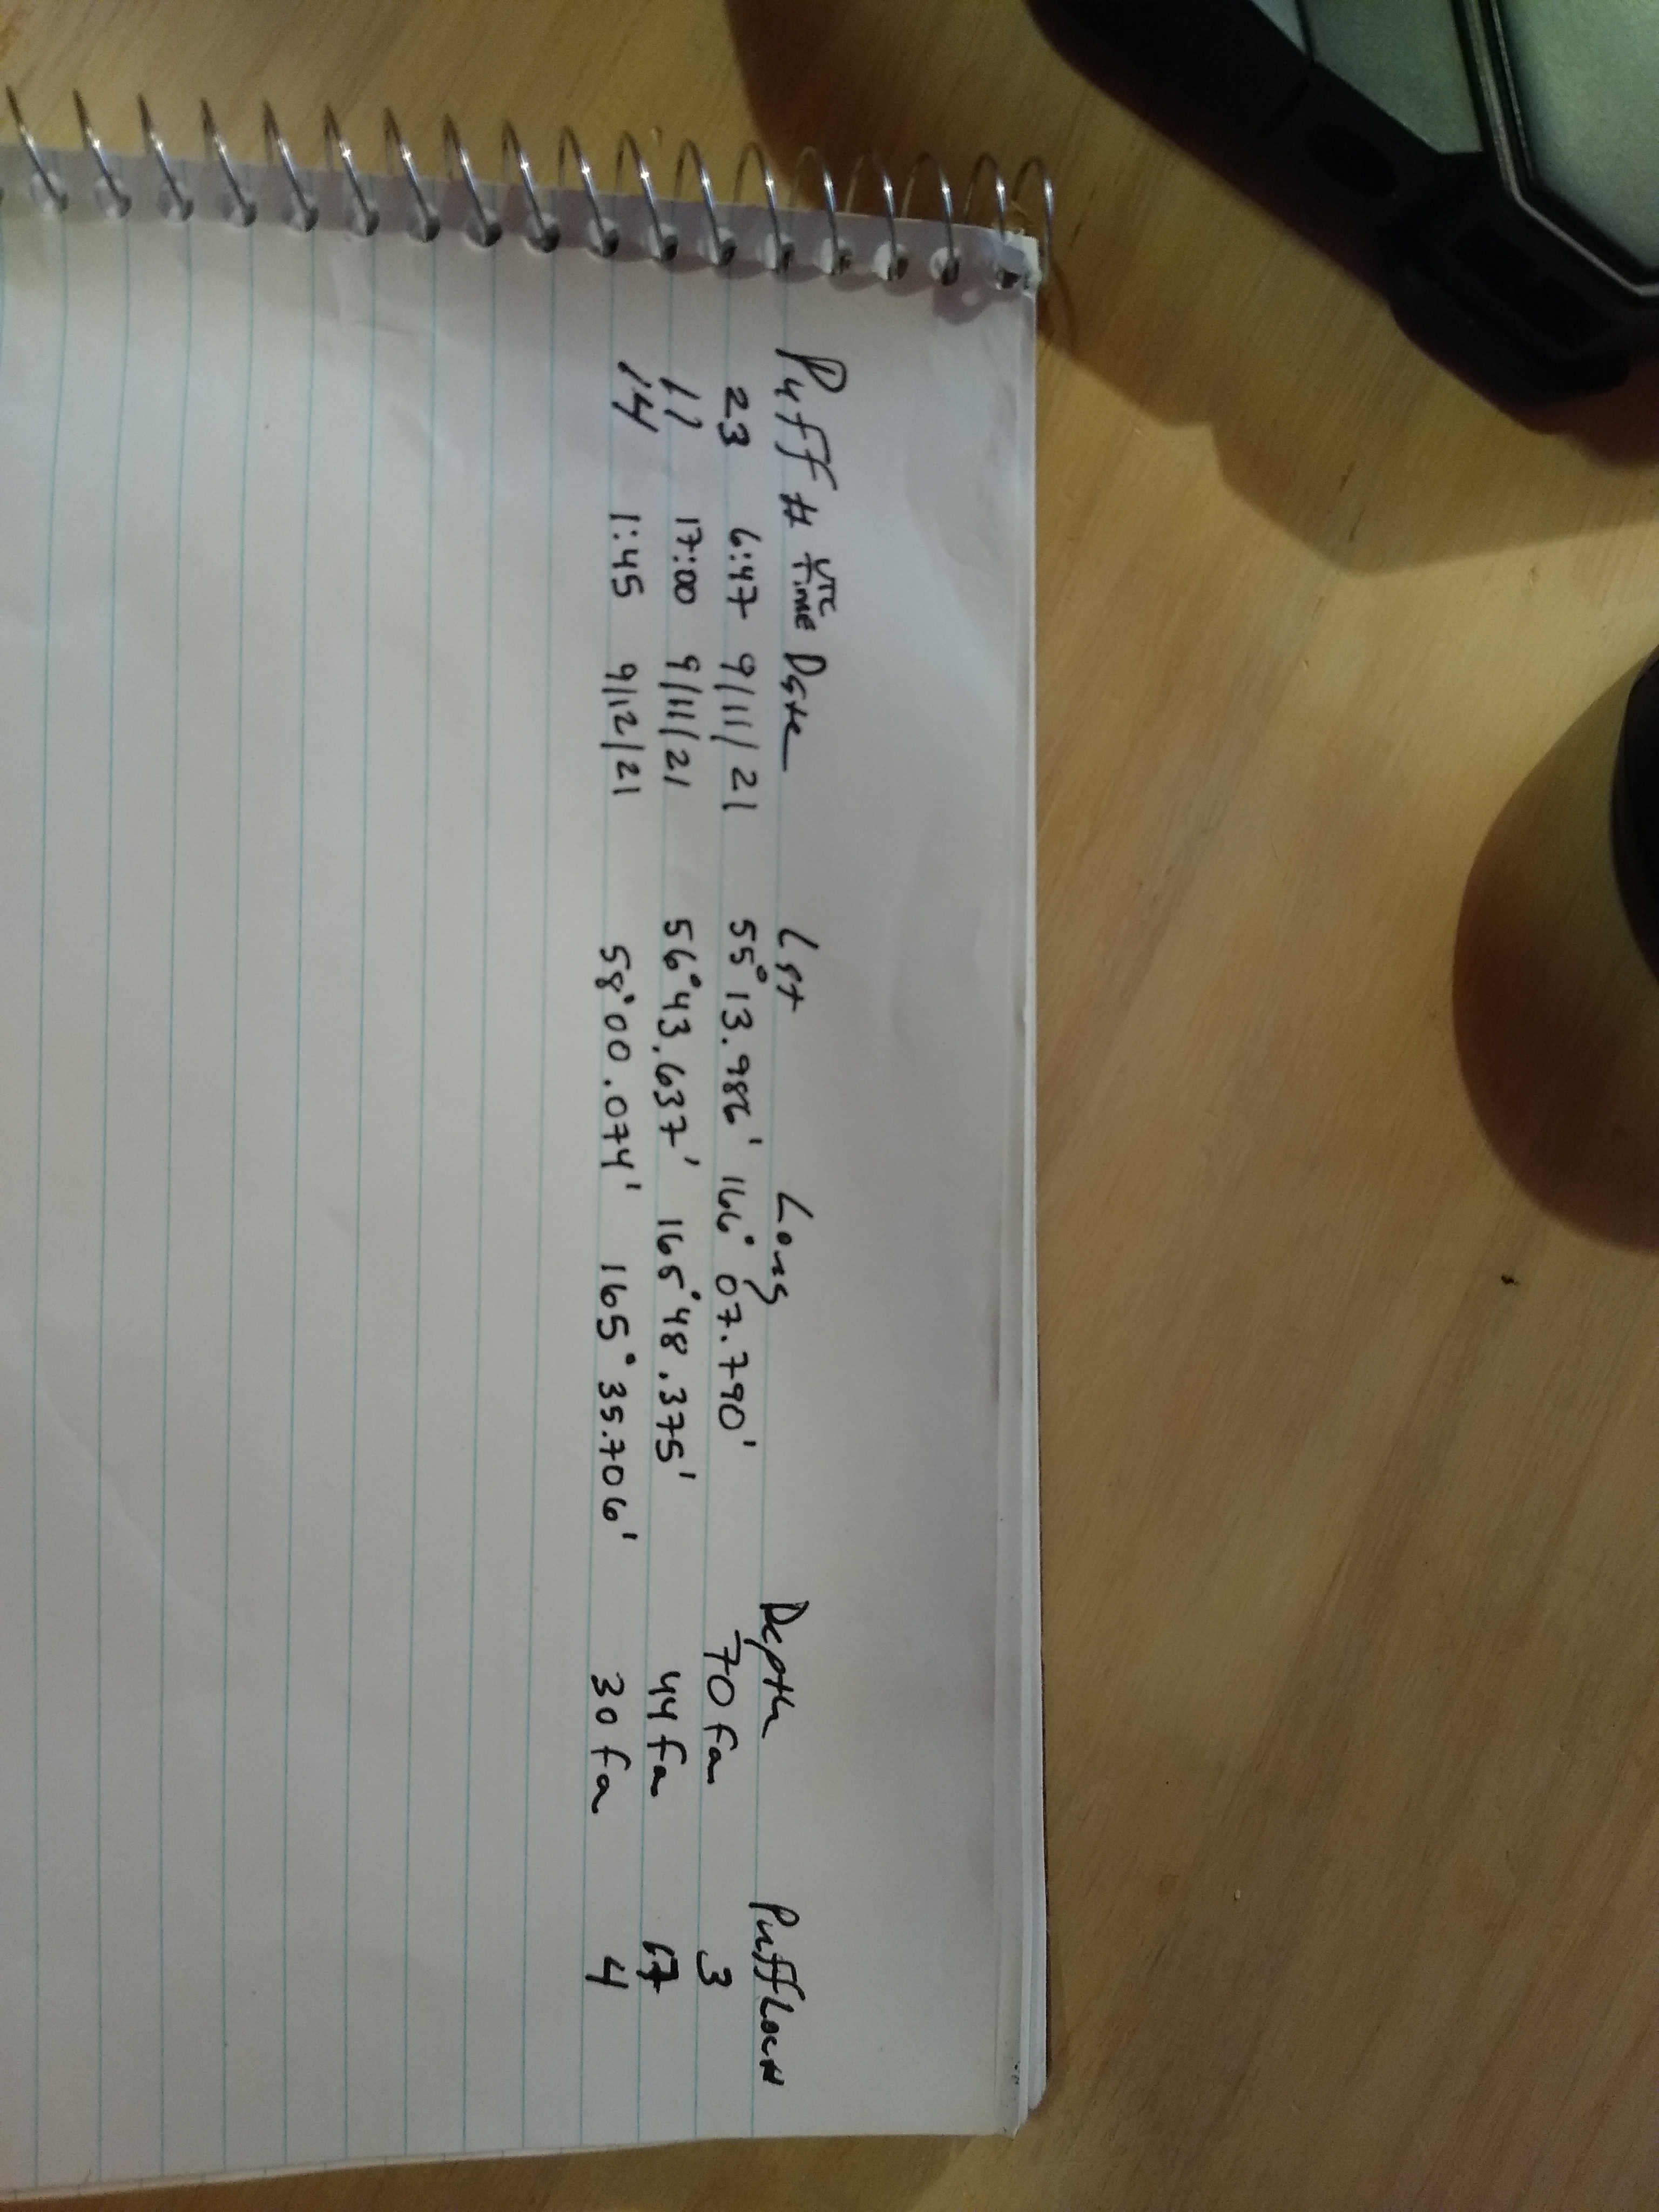 Puff # UTC Time Date Lat Long Depth Puff Loc #
23 6:47 9/11/21 55°13.986' 166°07.790' 70 fa 3
11 17:00 9/11/21 56°43.637' 165°48.375' 44 fa 17
14 1:45 9/12/21 58°00.074' 165°35.706' 30 fa 4